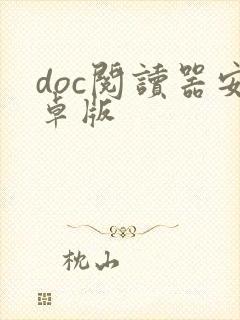 doc閱讀器安
卓版
枕山